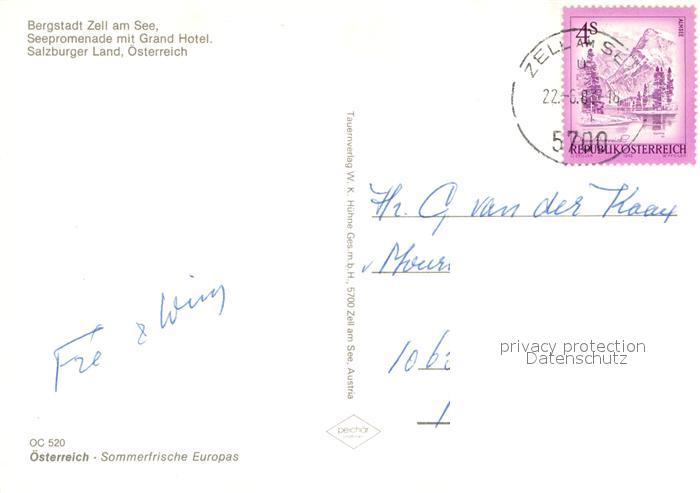 Bergstadt Zell am See,
Seepromenade mit Grand Hotel.
Salzburger Land, Österreich
4S
ALMSEE
REPUBLIK ÖSTERREICH
ZELL AM SEE
5700
Tauernverlag W. K. Hühne Ges.m.b.H., 5700 Zell am See, Austria
Hr. G van der Kaay
privacy protection
Datenschutz
& Wim
OC 520
Österreich - Sommerfrische Europas